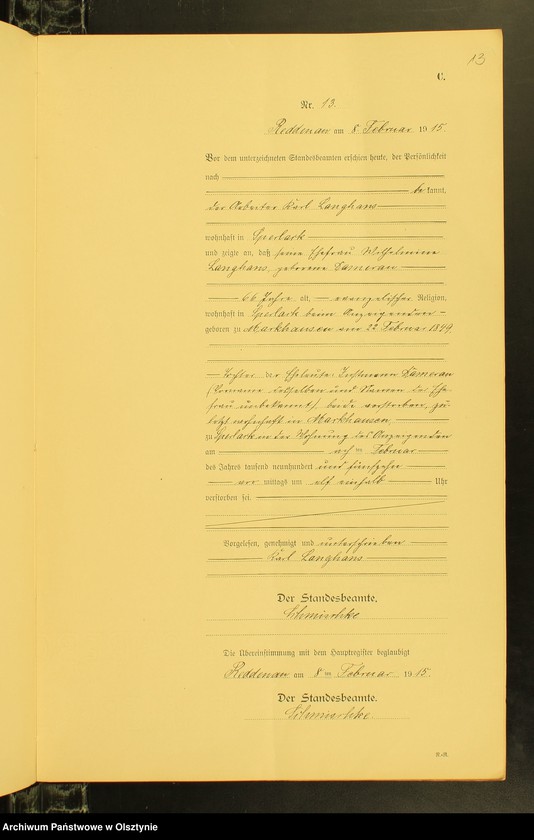 13
C.
Nr. 13.
Reddenau am 8. Februar 1915.
Vor dem unterzeichneten Standesbeamten erschien heute, der Persönlichkeit
nach
bekannt,
der Arbeiter Karl Langhans
wohnhaft in Sperlack
und zeigte an, daß seine Ehefrau Wilhelmine
Langhans, geborene Dameran
66 Jahre alt, evangelischer Religion,
wohnhaft in Sperlack beim Anzeigenden
geboren zu Markhausen am 22. Februar 1849
Tochter der Eheleute Instmann Dameran
(Vorname desselben und Namen der Ehe-
frau unbekannt), beide verstorben, zu-
letzt wohnhaft in Markhausen,
zu Sperlack in der Wohnung des Anzeigenden
am Februar
des Jahres tausend neunhundert und fünfzehn
vor mittags um elf einhalb Uhr
verstorben sei.
Vorgelesen, genehmigt und unterschrieben
Karl Langhans
Der Standesbeamte.
Die Übereinstimmung mit dem Hauptregister beglaubigt
Reddenau am 8ten Februar 1915.
Der Standesbeamte.
Archiwum Państwowe w Olsztynie